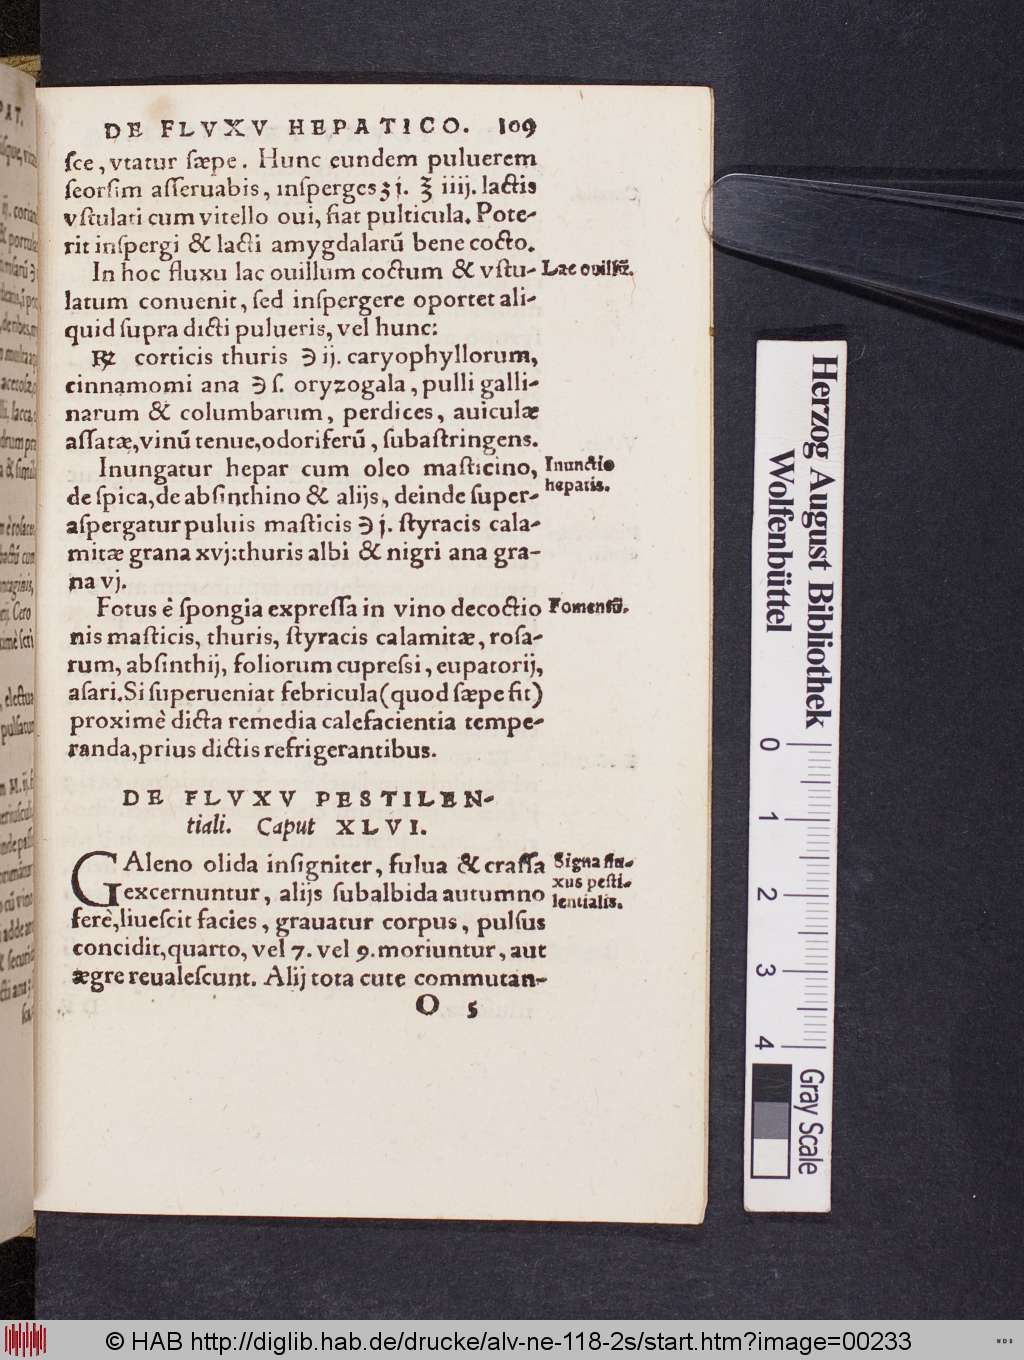 DE FLVXV HEPATICO. 109
ſce, vtatur ſæpe. Hunc eundem puluerem
ſeorſim aſſeruabis, inſperges ʒ j. ℥ iiij. lactis
vſtulati cum vitello oui, fiat pulticula. Pote-
rit inſpergi & lacti amygdalarũ bene cocto.
In hoc fluxu lac ouillum coctum & vſtu-
Lac ouillũ.
latum conuenit, ſed inſpergere oportet ali-
quid ſupra dicti pulueris, vel hunc:
℞ corticis thuris ℈ ij. caryophyllorum,
cinnamomi ana ℈ ſ. oryzogala, pulli galli-
narum & columbarum, perdices, auiculæ
aſſatæ, vinũ tenue, odoriferũ, ſubaſtringens.
Inungatur hepar cum oleo maſticino,
Inunctio
de ſpica, de abſinthino & alijs, deinde ſuper-
hepatis.
aſpergatur puluis maſticis ℈ j. ſtyracis cala-
mitæ grana xvj: thuris albi & nigri ana gra-
na vj.
Fotus è ſpongia expreſſa in vino decoctio
Fomentũ.
nis maſticis, thuris, ſtyracis calamitæ, roſa-
rum, abſinthij, foliorum cupreſsi, eupatorij,
aſari. Si ſuperueniat febricula (quod ſæpe fit)
proximè dicta remedia calefacientia tempe-
randa, prius dictis refrigerantibus.
DE FLVXV PESTILEN-
tiali. Caput XLVI.
GAleno olida inſigniter, fulua & craſſa
Signa flu-
excernuntur, alijs ſubalbida autumno
xus peſti-
lentialis.
ferè, liueſcit facies, grauatur corpus, pulſus
concidit, quarto, vel 7. vel 9. moriuntur, aut
ægre reualeſcunt. Alij tota cute commutan-
O 5
Herzog August Bibliothek
Wolfenbüttel
0 1 2 3 4
Gray Scale
© HAB http://diglib.hab.de/drucke/alv-ne-118-2s/start.htm?image=00233